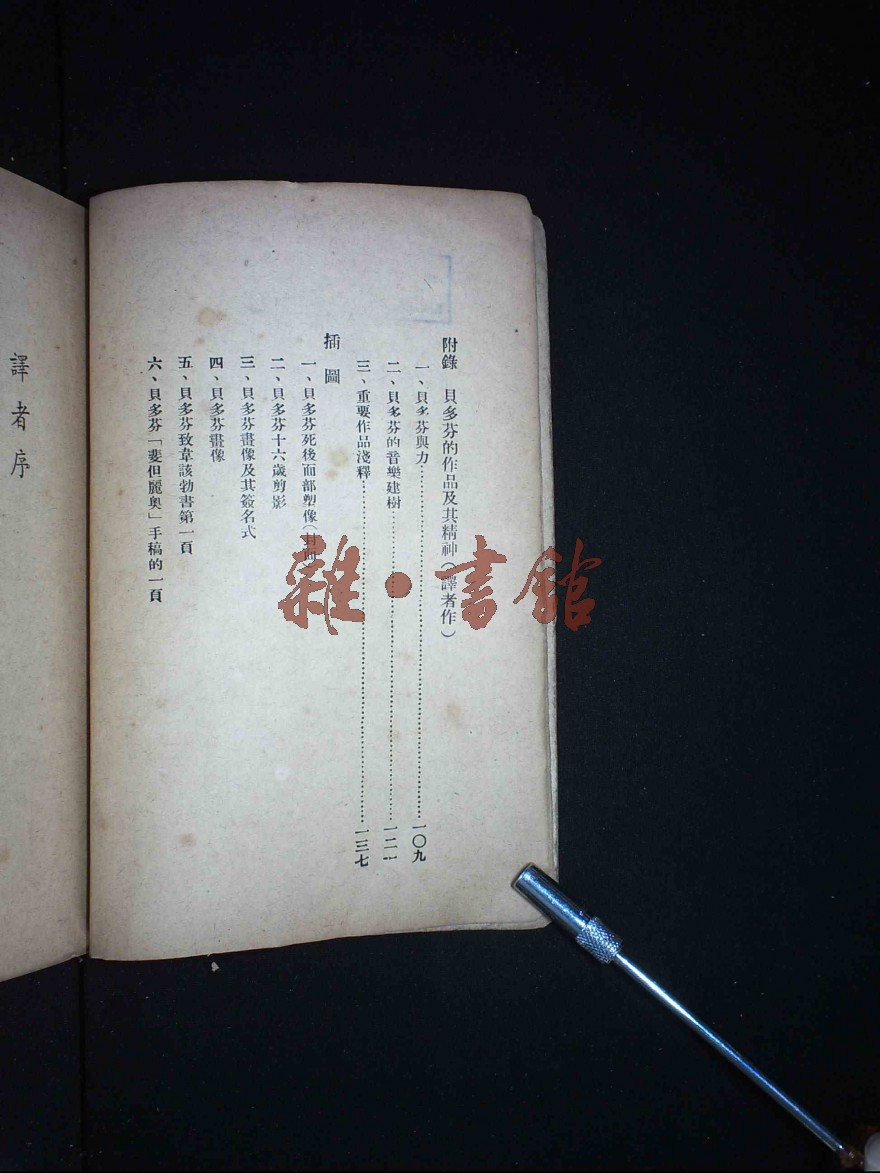 附錄　貝多芬的作品及其精神(譯者作)
一、貝多芬與力……一〇九
二、貝多芬的音樂建樹……一二一
三、重要作品淺釋……一三七
插圖
一、貝多芬死後面部塑像(封面)
二、貝多芬十六歲剪影
三、貝多芬畫像及其簽名式
四、貝多芬畫像
五、貝多芬致韋該勃書第一頁
六、貝多芬「斐但麗奧」手稿的一頁
譯者序
雜·書館